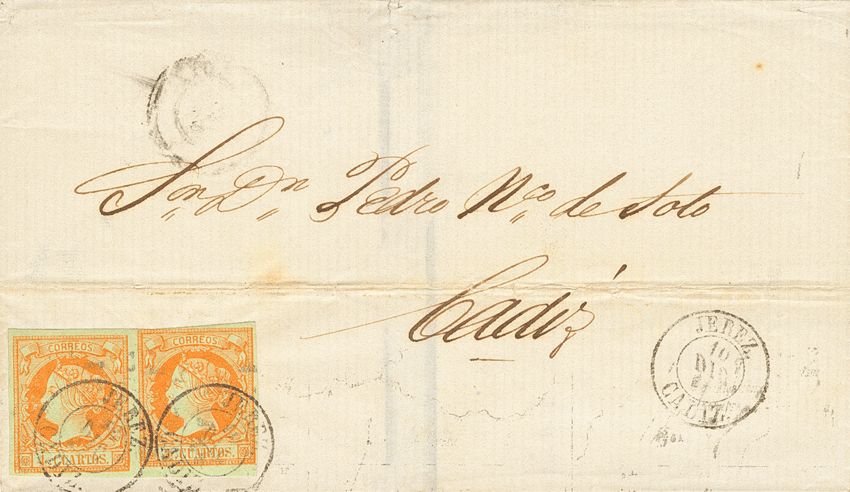 Sr. Dn. Pedro Nco. de Soto
Cádiz
CORREOS
CORREOS
CUARTOS.
CUARTOS.
JEREZ
JEREZ
JEREZ.
10
DIC
CADIZ